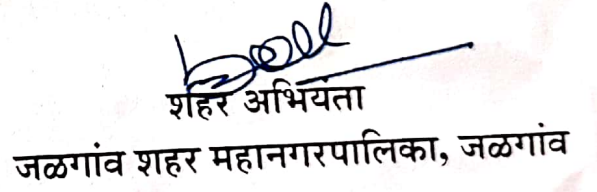 शहर अभियंता
जळगांव शहर महानगरपालिका, जळगांव